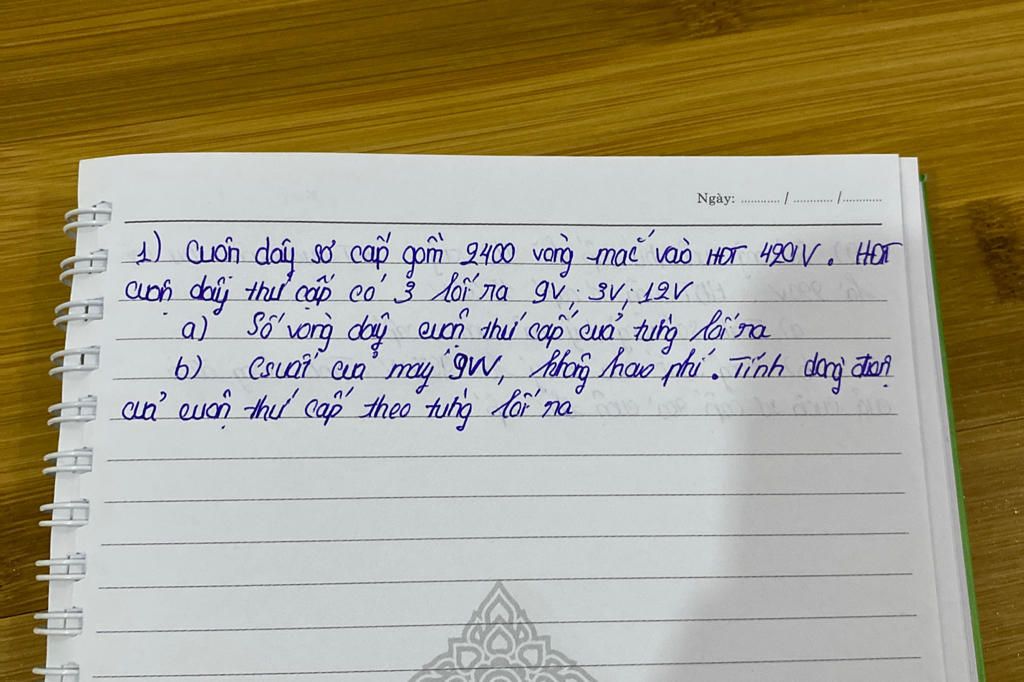 Ngày: ............ / ............ /............
1) Cuộn dây sơ cấp gồm 2400 vòng mắc vào HĐT 420V. HĐT
cuộn dây thứ cấp có 3 lối ra 9V; 3V; 12V
a) Số vòng dây cuộn thứ cấp của từng lối ra
b) Csuất của máy 9W, không hao phí. Tính dòng điện
của cuộn thứ cấp theo từng lối ra